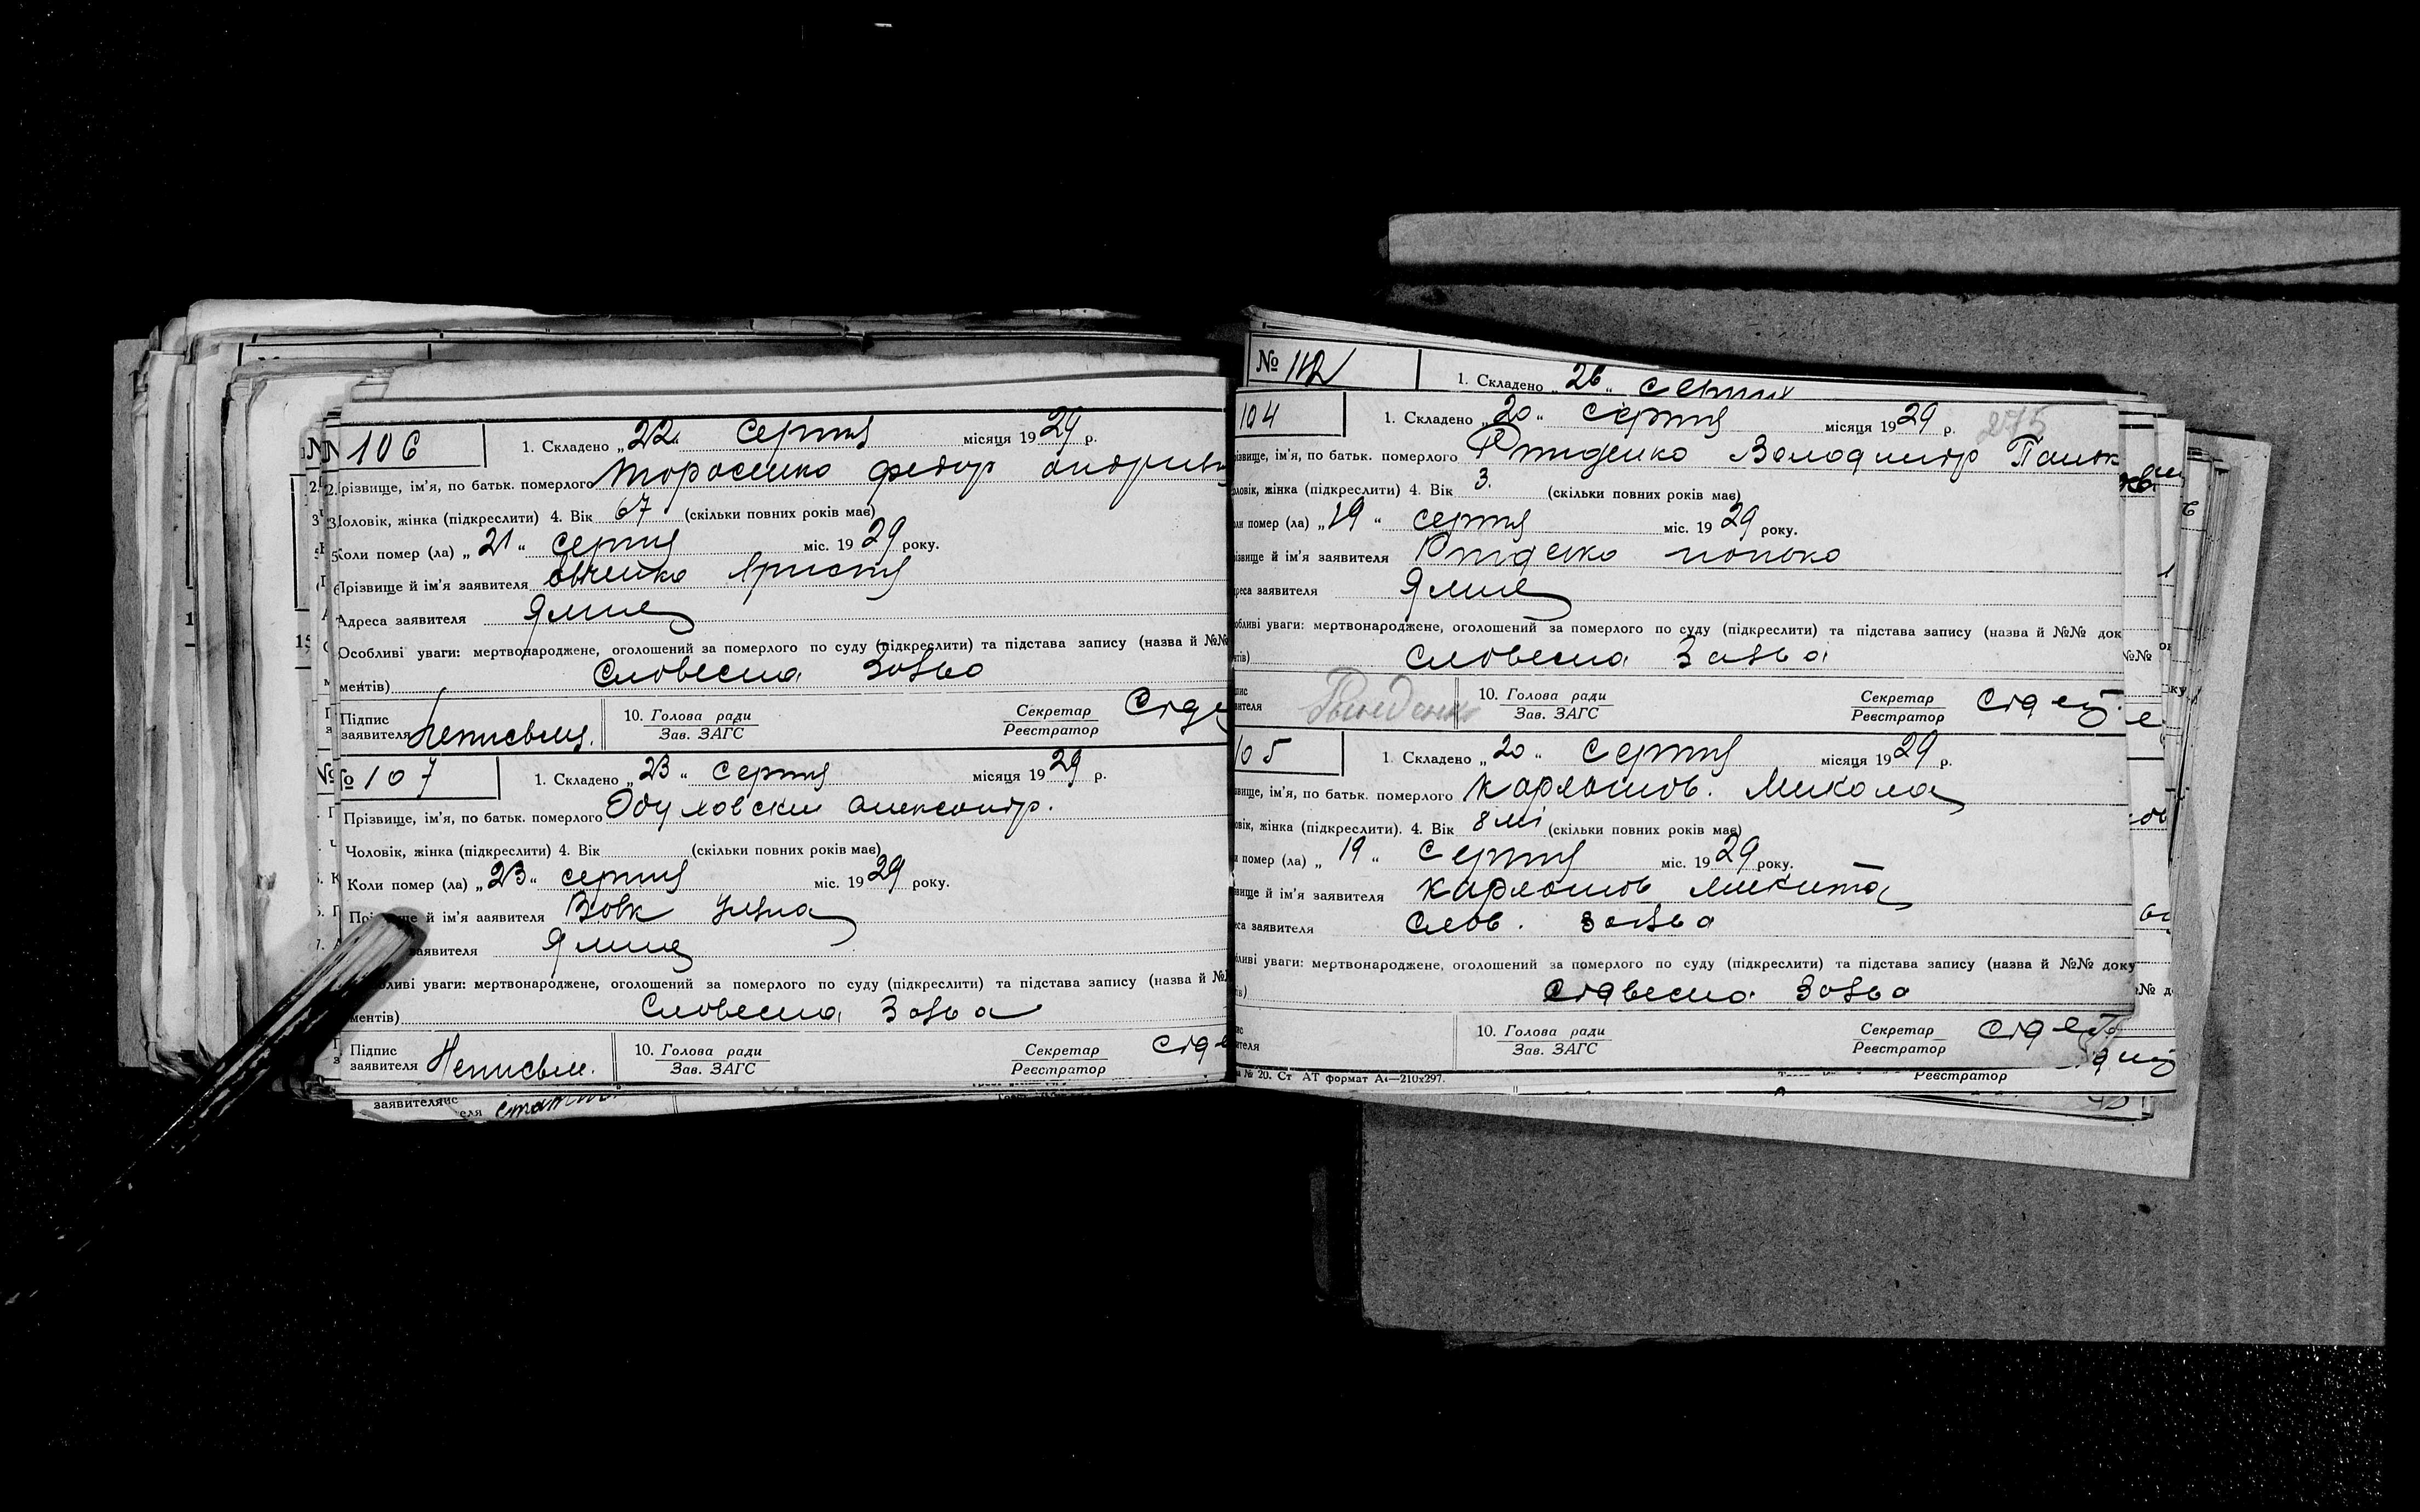 106
1. Складено „22“ серпня місяця 1929 р.
2. Прізвище, ім'я, по батьк. померлого Торосенко федор андриев
Чоловік, жінка (підкреслити) 4. Вік 67 (скільки повних років має)
Коли помер (ла) „21“ серпня міс. 1929 року.
Прізвище й ім'я заявителя Овченко Христя
Адреса заявителя Ялинц
Особливі уваги: мертвонароджене, оголошений за померлого по суду (підкреслити) та підстава запису (назва й №№
ментів) Словесна Заява
Підпис заявителя Неписьмц. 10. Голова ради Зав. ЗАГС Секретар Реєстратор
№ 107
1. Складено „23“ серпня місяця 1929 р.
Прізвище, ім'я, по батьк. померлого Обуховски александр.
Чоловік, жінка (підкреслити) 4. Вік (скільки повних років має)
Коли помер (ла) „23“ серпня міс. 1929 року.
й ім'я заявителя Вовк Уляна
заявителя Ялинц
уваги: мертвонароджене, оголошений за померлого по суду (підкреслити) та підстава запису (назва й
ментів) Словесна Заява
Підпис заявителя Неписьм. 10. Голова ради Зав. ЗАГС Секретар Реєстратор
№ 112
1. Складено „26“ серпня
104
1. Складено „20“ серпня місяця 1929 р. 275
ізвище, ім'я, по батьк. померлого Володимир Паньк
жінка (підкреслити) 4. Вік 3. (скільки повних років має)
помер (ла) „19“ серпня міс. 1929 року.
ізвище й ім'я заявителя
реса заявителя Ялинц
обливі уваги: мертвонароджене, оголошений за померлого по суду (підкреслити) та підстава запису (назва й №№ док
нтів) Словесна Заява
10. Голова ради Зав. ЗАГС Секретар Реєстратор
105
1. Складено „20“ серпня місяця 1929 р.
звище, ім'я, по батьк. померлого Карлашов. Микола
жінка (підкреслити). 4. Вік 8 мі (скільки повних років має)
помер (ла) „19“ Серпня міс. 1929 року.
звище й ім'я заявителя Карлашов Микита
еса заявителя Слов. Заява
уваги: мертвонароджене, оголошений за померлого по суду (підкреслити) та підстава запису (назва й №№ доку
Словесна Заява
10. Голова ради Зав. ЗАГС Секретар Реєстратор
№ 20. Ст АТ формат А₄—210х297.
Реєстратор